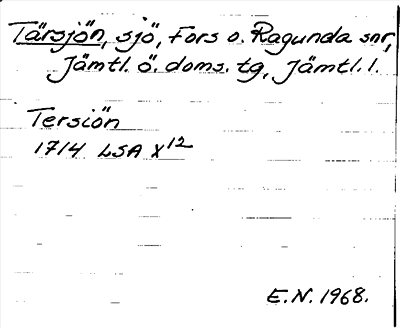 Tärsjön, sjö, Fors o. Ragunda snr,
Jämtl. ö. doms. tg, Jämtl. l.
Tersiön
1714 LSA X12
E.N. 1968.